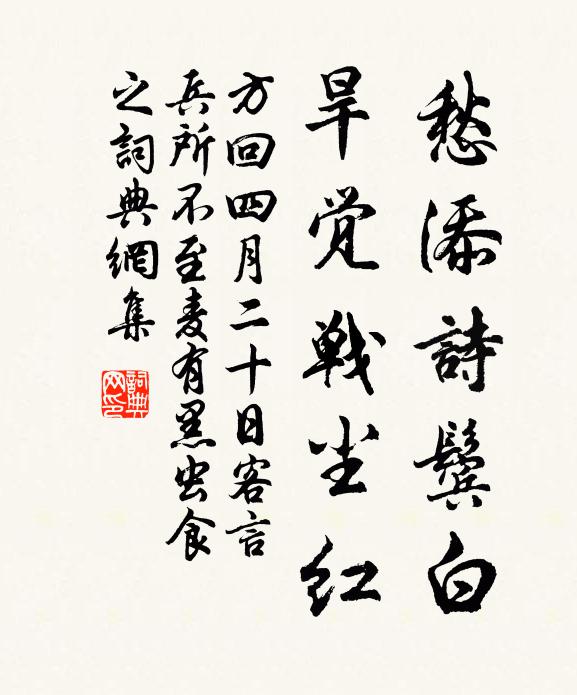 愁添詩鬓白
旱觉戦尘红
方回四月二十日客言
兵所不至麦有黑虫食
之詞典網集
詞典
网印